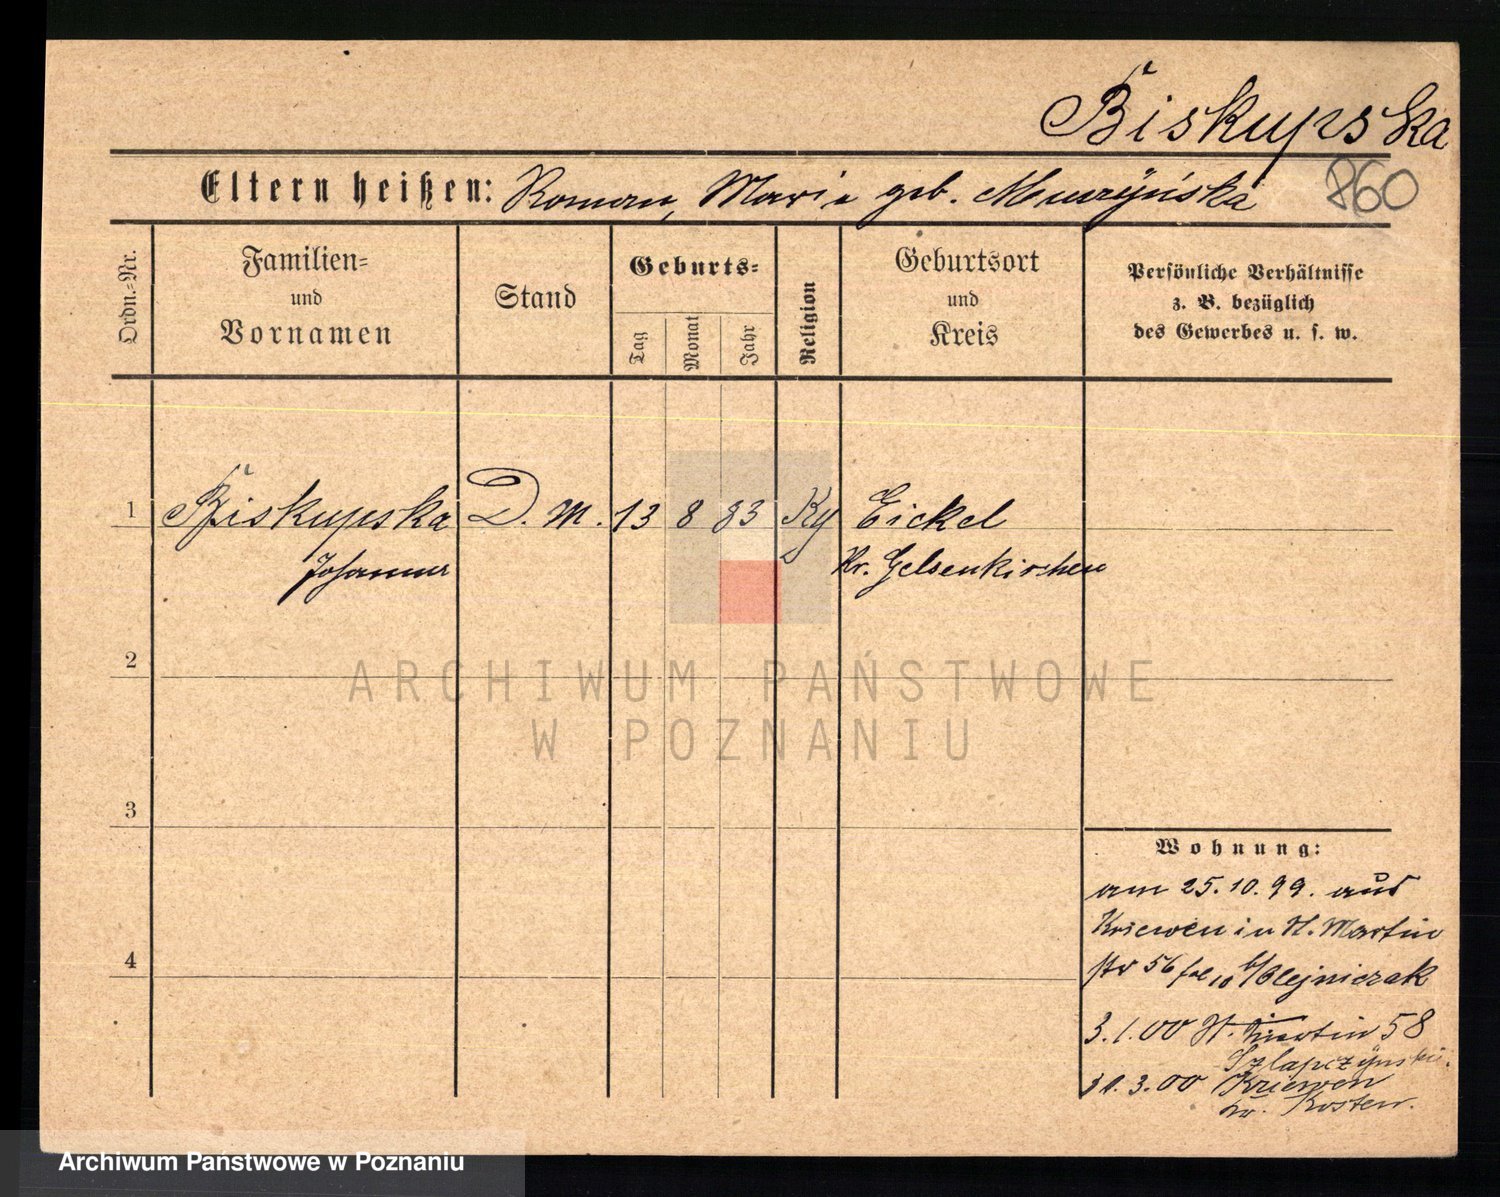 Biskupska
Eltern heißen: Roman, Maria geb. Murzyńska
860
Ordn.-Nr.
Familien-
und
Vornamen
Stand
Geburts-
Tag
Monat
Jahr
Religion
Geburtsort
und
Kreis
Persönliche Verhältnisse
z. B. bezüglich
des Gewerbes u. s. w.
1 Biskupska D. M. 13 8 83 Eickel
Johanna Kr. Gelsenkirchen
2
ARCHIWUM PAŃSTWOWE
W POZNANIU
3
Wohnung:
am 25.10.99. aus
Kriewen in St. Martin
4
str 56 bei Olejniczak
3.1.00 St. Martin 58
Szlapczynski.
31.3.00 Kriewen
Kr. Kosten.
Archiwum Państwowe w Poznaniu